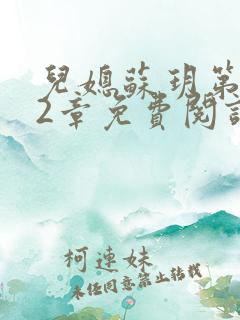 兒媳蘇玥第
2章免費閱讀
柯連妹
未经同意禁止转载